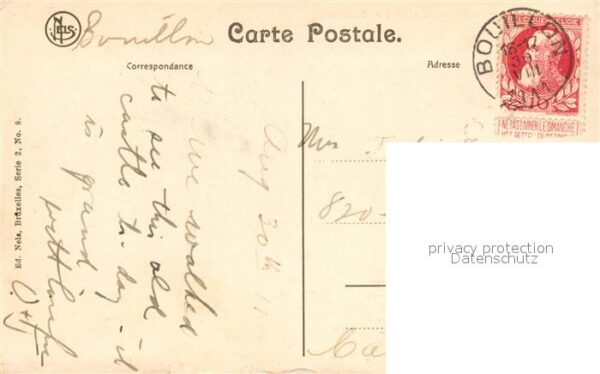 NELS
Bouillon
Carte Postale.
Correspondance
Adresse
BOUILLON
NE PAS LIVRER LE DIMANCHE
Ed. Nels, Bruxelles, Serie 2, No. 8.
Aug 30th 11
We walked
to see this old
castle to-day - it
is grand
with love
Mrs
820-
Ca
privacy protection
Datenschutz